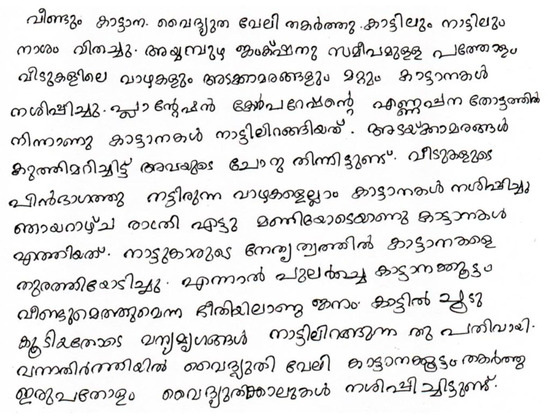 വീണ്ടും കാട്ടാന. വൈദ്യുത വേലി തകർത്തു. കാട്ടിലും നാട്ടിലും
നാശം വിതച്ചു. അയ്യമ്പുഴ ജംക്ഷനു സമീപമുള്ള പത്തോളം
വീടുകളിലെ വാഴകളും അടക്കാമരങ്ങളും മറ്റും കാട്ടാനകൾ
നശിപ്പിച്ചു. പ്ലാന്റേഷൻ കോർപറേഷന്റെ എണ്ണപ്പന തോട്ടത്തിൽ
നിന്നാണു കാട്ടാനകൾ നാട്ടിലിറങ്ങിയത്. അടയ്ക്കാമരങ്ങൾ
കുത്തിമറിച്ചിട്ട് അവയുടെ ചോറു തിന്നിട്ടുണ്ട്. വീടുകളുടെ
പിൻഭാഗത്തു നട്ടിരുന്ന വാഴകളെല്ലാം കാട്ടാനകൾ നശിപ്പിച്ചു
ഞായറാഴ്ച രാത്രി എട്ടു മണിയോടെയാണു കാട്ടാനകൾ
എത്തിയത്. നാട്ടുകാരുടെ നേതൃത്വത്തിൽ കാട്ടാനകളെ
തുരത്തിയോടിച്ചു. എന്നാൽ പുലർച്ചെ കാട്ടാനക്കൂട്ടം
വീണ്ടുമെത്തുമെന്ന ഭീതിയിലാണു ജനം. കാട്ടിൽ ചൂടു
കൂടിയതോടെ വന്യമൃഗങ്ങൾ നാട്ടിലിറങ്ങുന്ന തു പതിവായി.
വനാതിർത്തിയിൽ വൈദ്യുതി വേലി കാട്ടാനക്കൂട്ടം തകർത്തു
ഇരുപതോളം വൈദ്യുതിക്കാലുകൾ നശിപ്പി ച്ചിട്ടുണ്ട്.